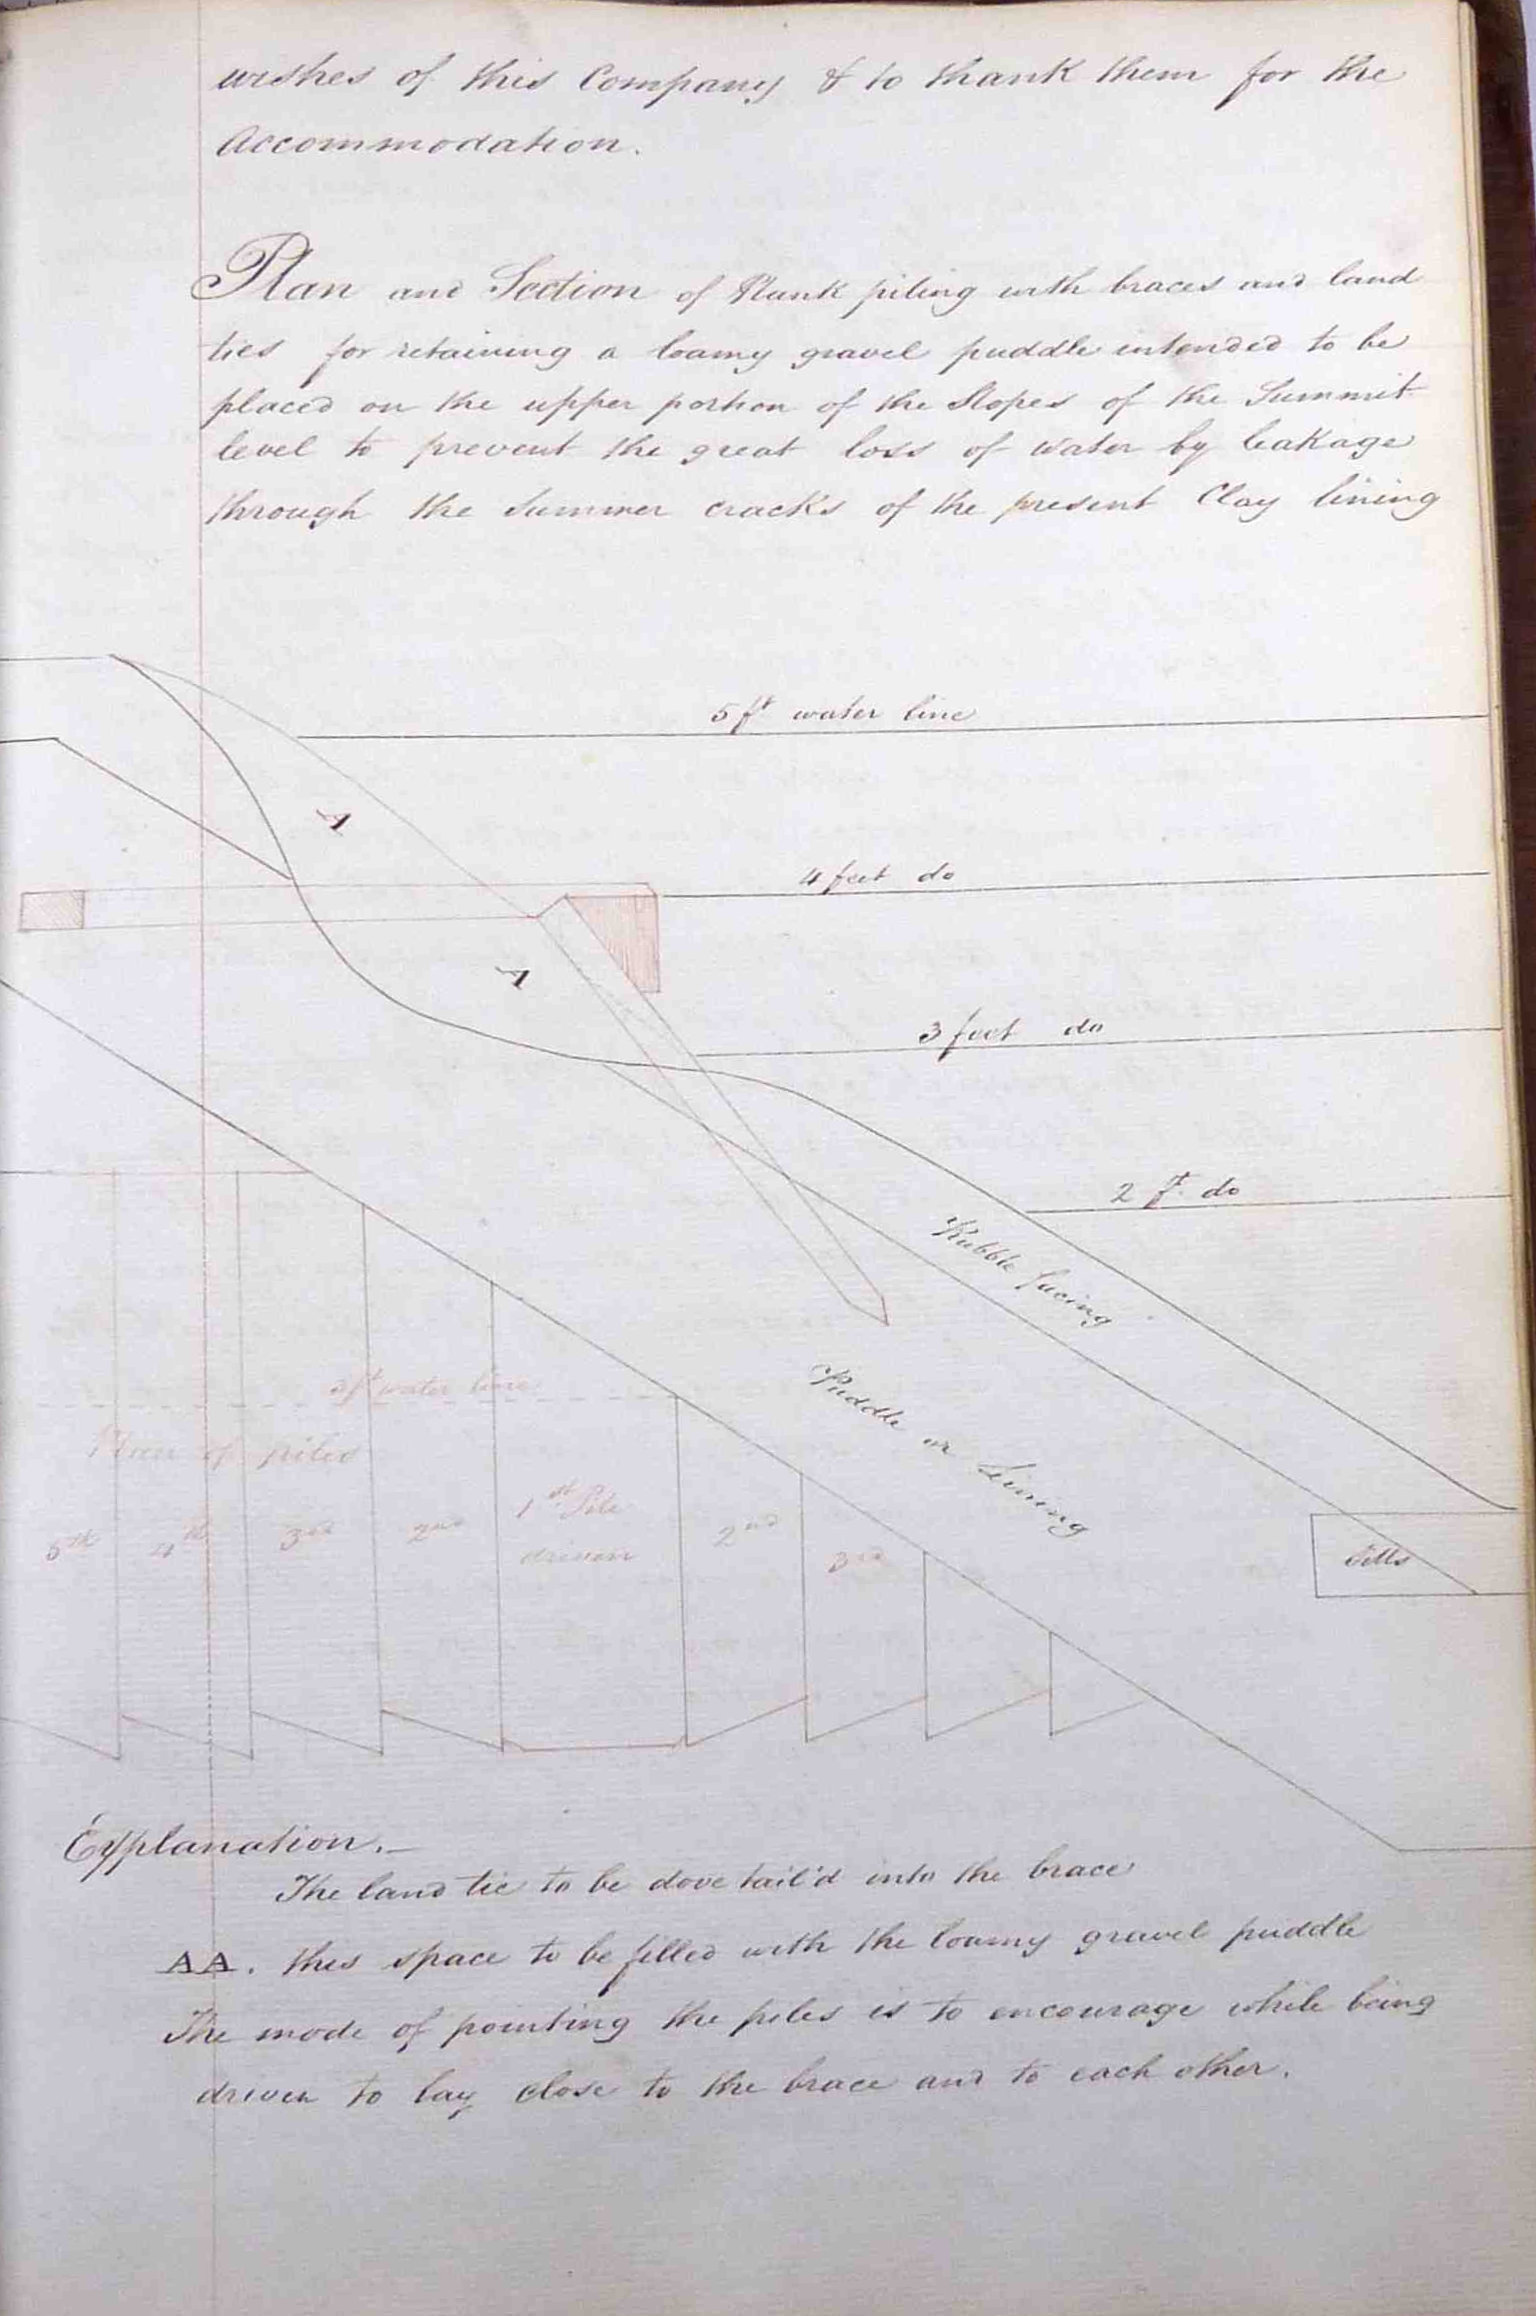 wishes of this Company & to thank them for the
Accommodation.
Plan and Section of Plank piling with braces and land
ties for retaining a loamy gravel puddle intended to be
placed on the upper portion of the Slopes of the Summit
level to prevent the great loss of water by leakage
through the Summer cracks of the present Clay lining
5 ft water line
A
4 feet do
A
3 feet do
2 ft do
Rubble facing
Puddle or Lining
3 ft water line
Plan of piles
5th 4th 3rd 2nd 1st Pile driven 2nd 3rd
Sills
Explanation.—
The land tie to be dove tail'd into the brace
AA. this space to be filled with the loamy gravel puddle
The mode of pointing the piles is to encourage while being
driven to lay close to the brace and to each other.